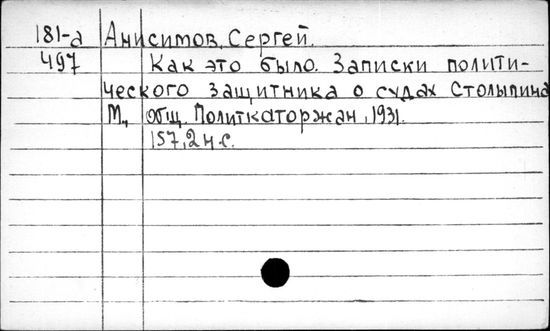 181-а Анисимов, Сергей.
497 Как это было. Записки полити-
ческого защитника о судах Столыпина
М., общ. Политкаторжан, 1931.
157, 2 н.с.